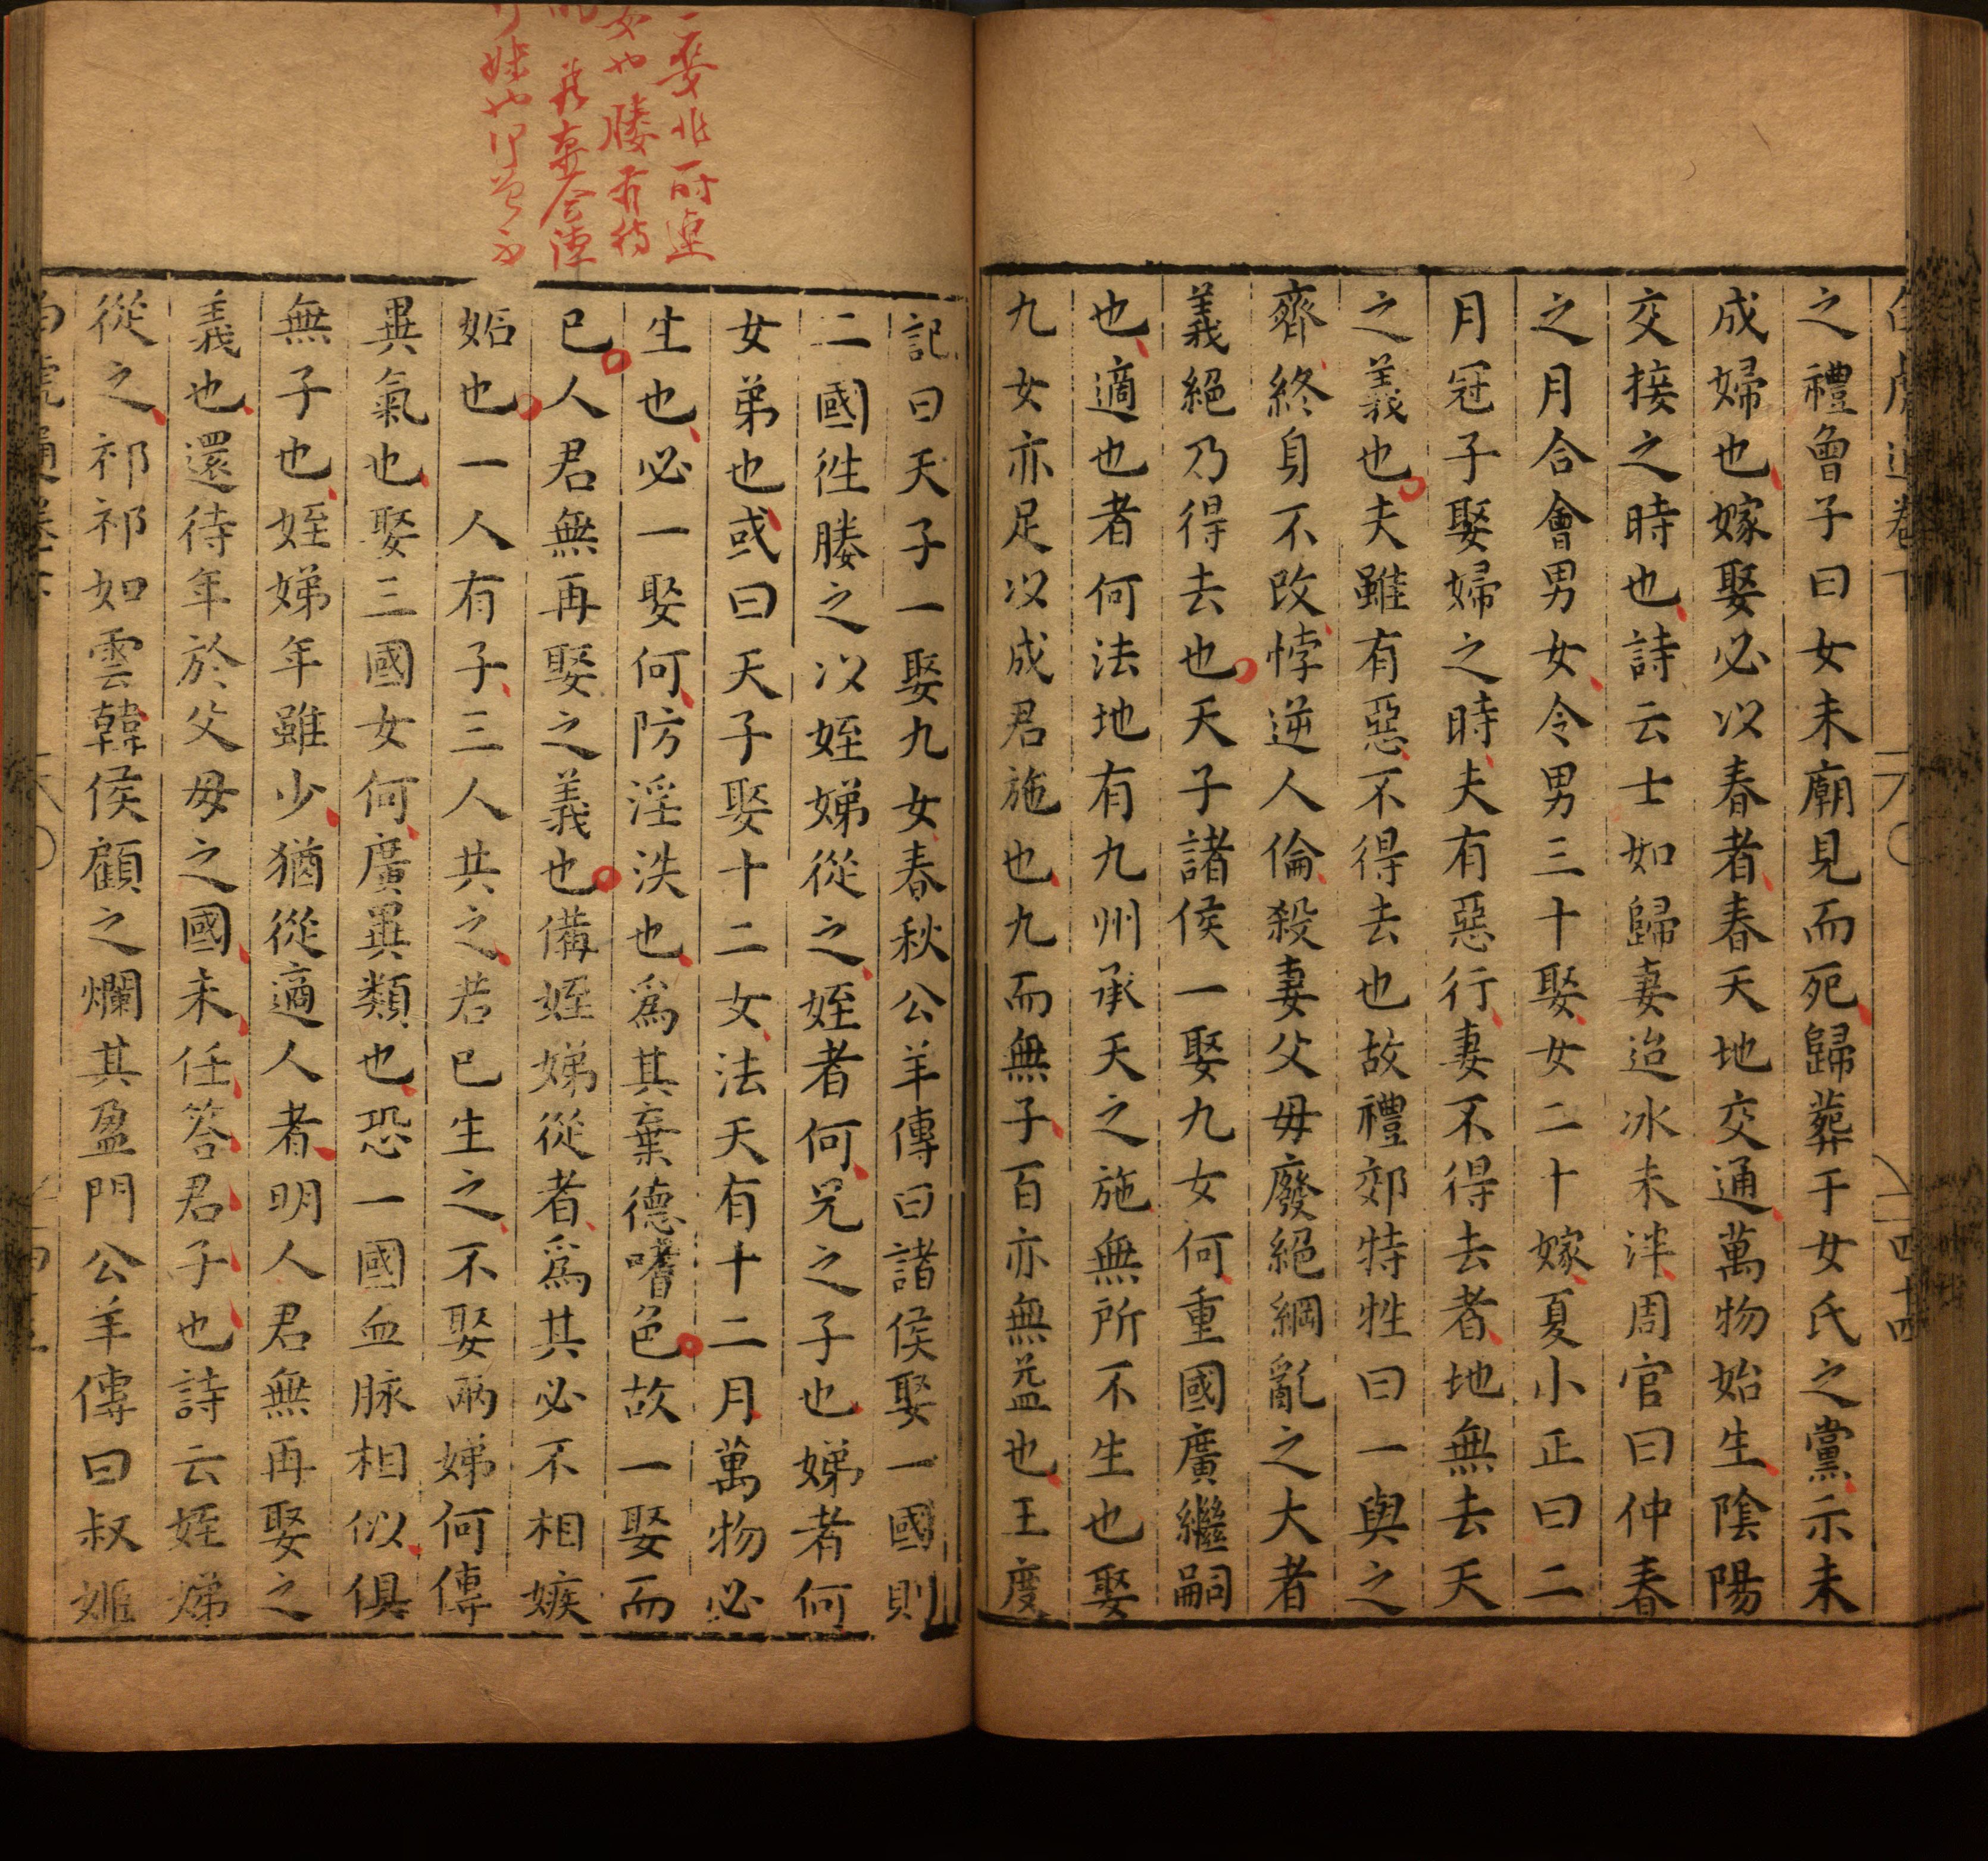 白虎通卷下 四十四
之禮曾子曰女未廟見而死歸葬于女氏之黨示未
成婦也嫁娶必以春者春天地交通萬物始生陰陽
交接之時也詩云士如歸妻迨冰未泮周官曰仲春
之月合會男女令男三十娶女二十嫁夏小正曰二
月冠子娶婦之時夫有惡行妻不得去者地無去天
之義也夫雖有惡不得去也故禮郊特牲曰一與之
齊終身不改悖逆人倫殺妻父母廢絕綱亂之大者
義絕乃得去也天子諸侯一娶九女何重國廣繼嗣
也適也者何法地有九州承天之施無所不生也娶
九女亦足以成君施也九而無子百亦無益也王度
記曰天子一娶九女春秋公羊傳曰諸侯娶一國則
二國徃媵之以姪娣從之姪者何兄之子也娣者何
女弟也或曰天子娶十二女法天有十二月萬物必
生也必一娶何防淫泆也爲其棄德嗜色故一娶而
已人君無再娶之義也備姪娣從者爲其必不相嫉
妬也一人有子三人共之若已生之不娶兩娣何傳
異氣也娶三國女何廣異類也恐一國血脉相似俱
無子也姪娣年雖少猶從適人者明人君無再娶之
義也還待年於父母之國未任答君子也詩云姪娣
從之祁祁如雲韓侯顧之爛其盈門公羊傳曰叔姬